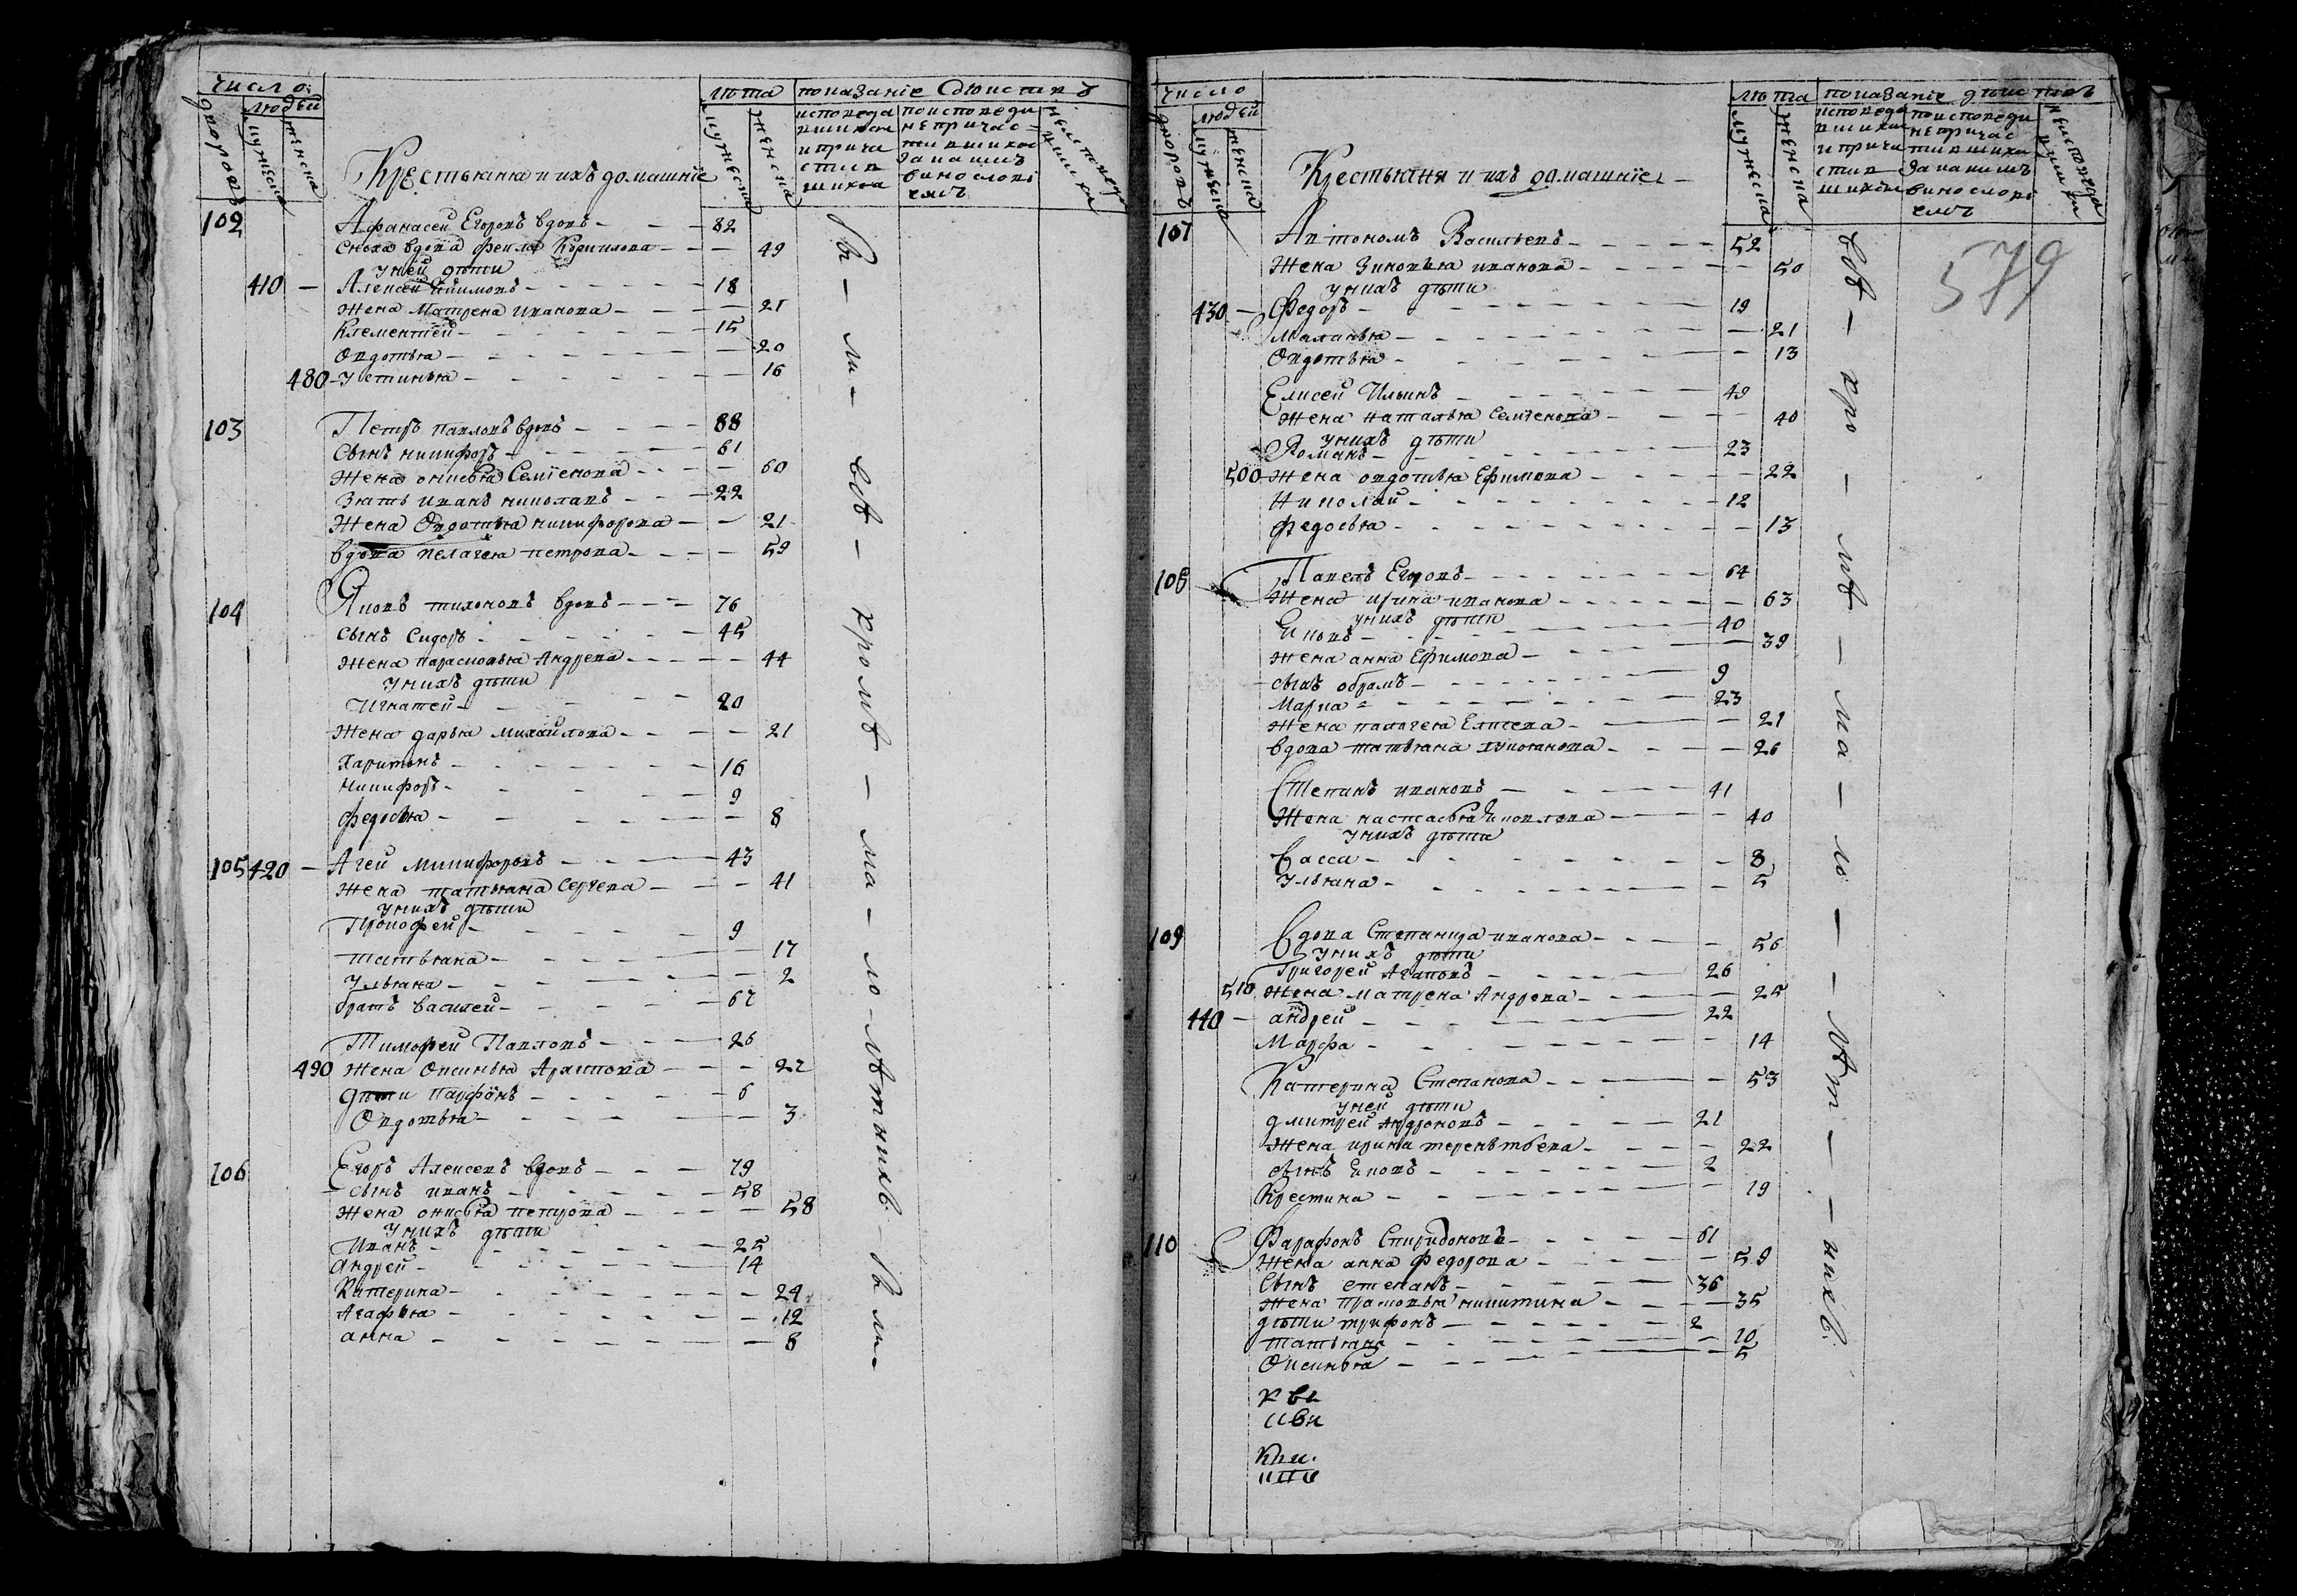 число
людей
дворовъ
мужеска
женска
Крестьяня и ихъ домашніе
лѣта
мужеска
женска
показаніе
исповеда
вшихся
и прича
стив
шихся
по исповеди
не причас
тившихся
за какимъ
винослові
емъ
102 Афанасей Егоровъ вдовъ 82
сноха вдова Фекла Корнилова 49
у ней дѣти
410 Алексей 18
жена Матрена иванова 21
Клементей 15
Овдотья 20
480 Устинья 16
103 Петръ павловъ вдовъ 88
сынъ никифоръ 61
жена онисья Семіонова 60
зять иванъ николаевъ 22
жена Овдотья никифорова 21
вдова пелагея петрова 59
104 Яковъ тихоновъ вдовъ 76
сынъ Сидоръ 45
жена парасковья Андрева 44
у нихъ дѣти
Игнатей 20
жена дарья михайлова 21
Харитонъ 16
никифоръ 9
федосья 8
105 420 Агей Никифоровъ 43
жена татьяна Сергева 41
у нихъ дѣти
Прокофей 9
татьяна 17
Ульяна 2
братъ василей 67
Тимофей Павловъ 26
490 жена Оксинья Архипова 22
дѣти парфёнъ 6
Овдотья 3
106 Егоръ Алексевъ вдовъ 79
сынъ иванъ 58
жена онисья петрова 58
у нихъ дѣти
Иванъ 25
Андрей 14
Катерина 24
Агафья 12
анна 8
вѣ – кромѣ – ма – ло – лѣтнихъ
число
людей
дворовъ
мужеска
женска
Крестьяня и ихъ домашніе
лѣта
мужеска
женска
показаніе
исповеда
вшихся
и прича
стив
шихся
по исповеди
не причас
тившихся
за какимъ
винослові
емъ
579
107 Антономъ Васильевъ 52
жена Зиновья иванова 50
у нихъ дѣти
430 Федоръ 19
Маланья 21
Овдотья 13
Елисей Ильинъ 49
жена наталья Семіонова 40
у нихъ дѣти
Романъ 23
500 жена овдотья Ефимова 22
Николай 12
федосья 13
108 Павелъ Егоровъ 64
жена ирина иванова 63
у нихъ дѣти
Яковъ 40
жена анна Ефимова 39
сынъ обрамъ 9
Марка 23
жена палагея Елисева 21
вдова татьяна 26
Степанъ ивановъ 41
жена настасья Яковлева 40
у нихъ дѣти
Васса 8
Ульяна 5
109 Вдова Степанида иванова 56
у нихъ дѣти
Григорей Агаповъ 26
510 жена матрена Андрева 25
440 андрей 22
Марфа 14
Катерина Степанова 53
у ней дѣти
дмитрей Андроновъ 21
жена ирина терентьева 22
сынъ Яковъ 2
Крестина 19
110 Фарафонъ Спиридоновъ 61
жена анна федорова 59
Сынъ степанъ 36
жена прасковья никитина 35
дѣти трифонъ 2
татьяна 10
Оксинья 5
всѣ – кро – мѣ – ма – ло – лѣт – нихъ